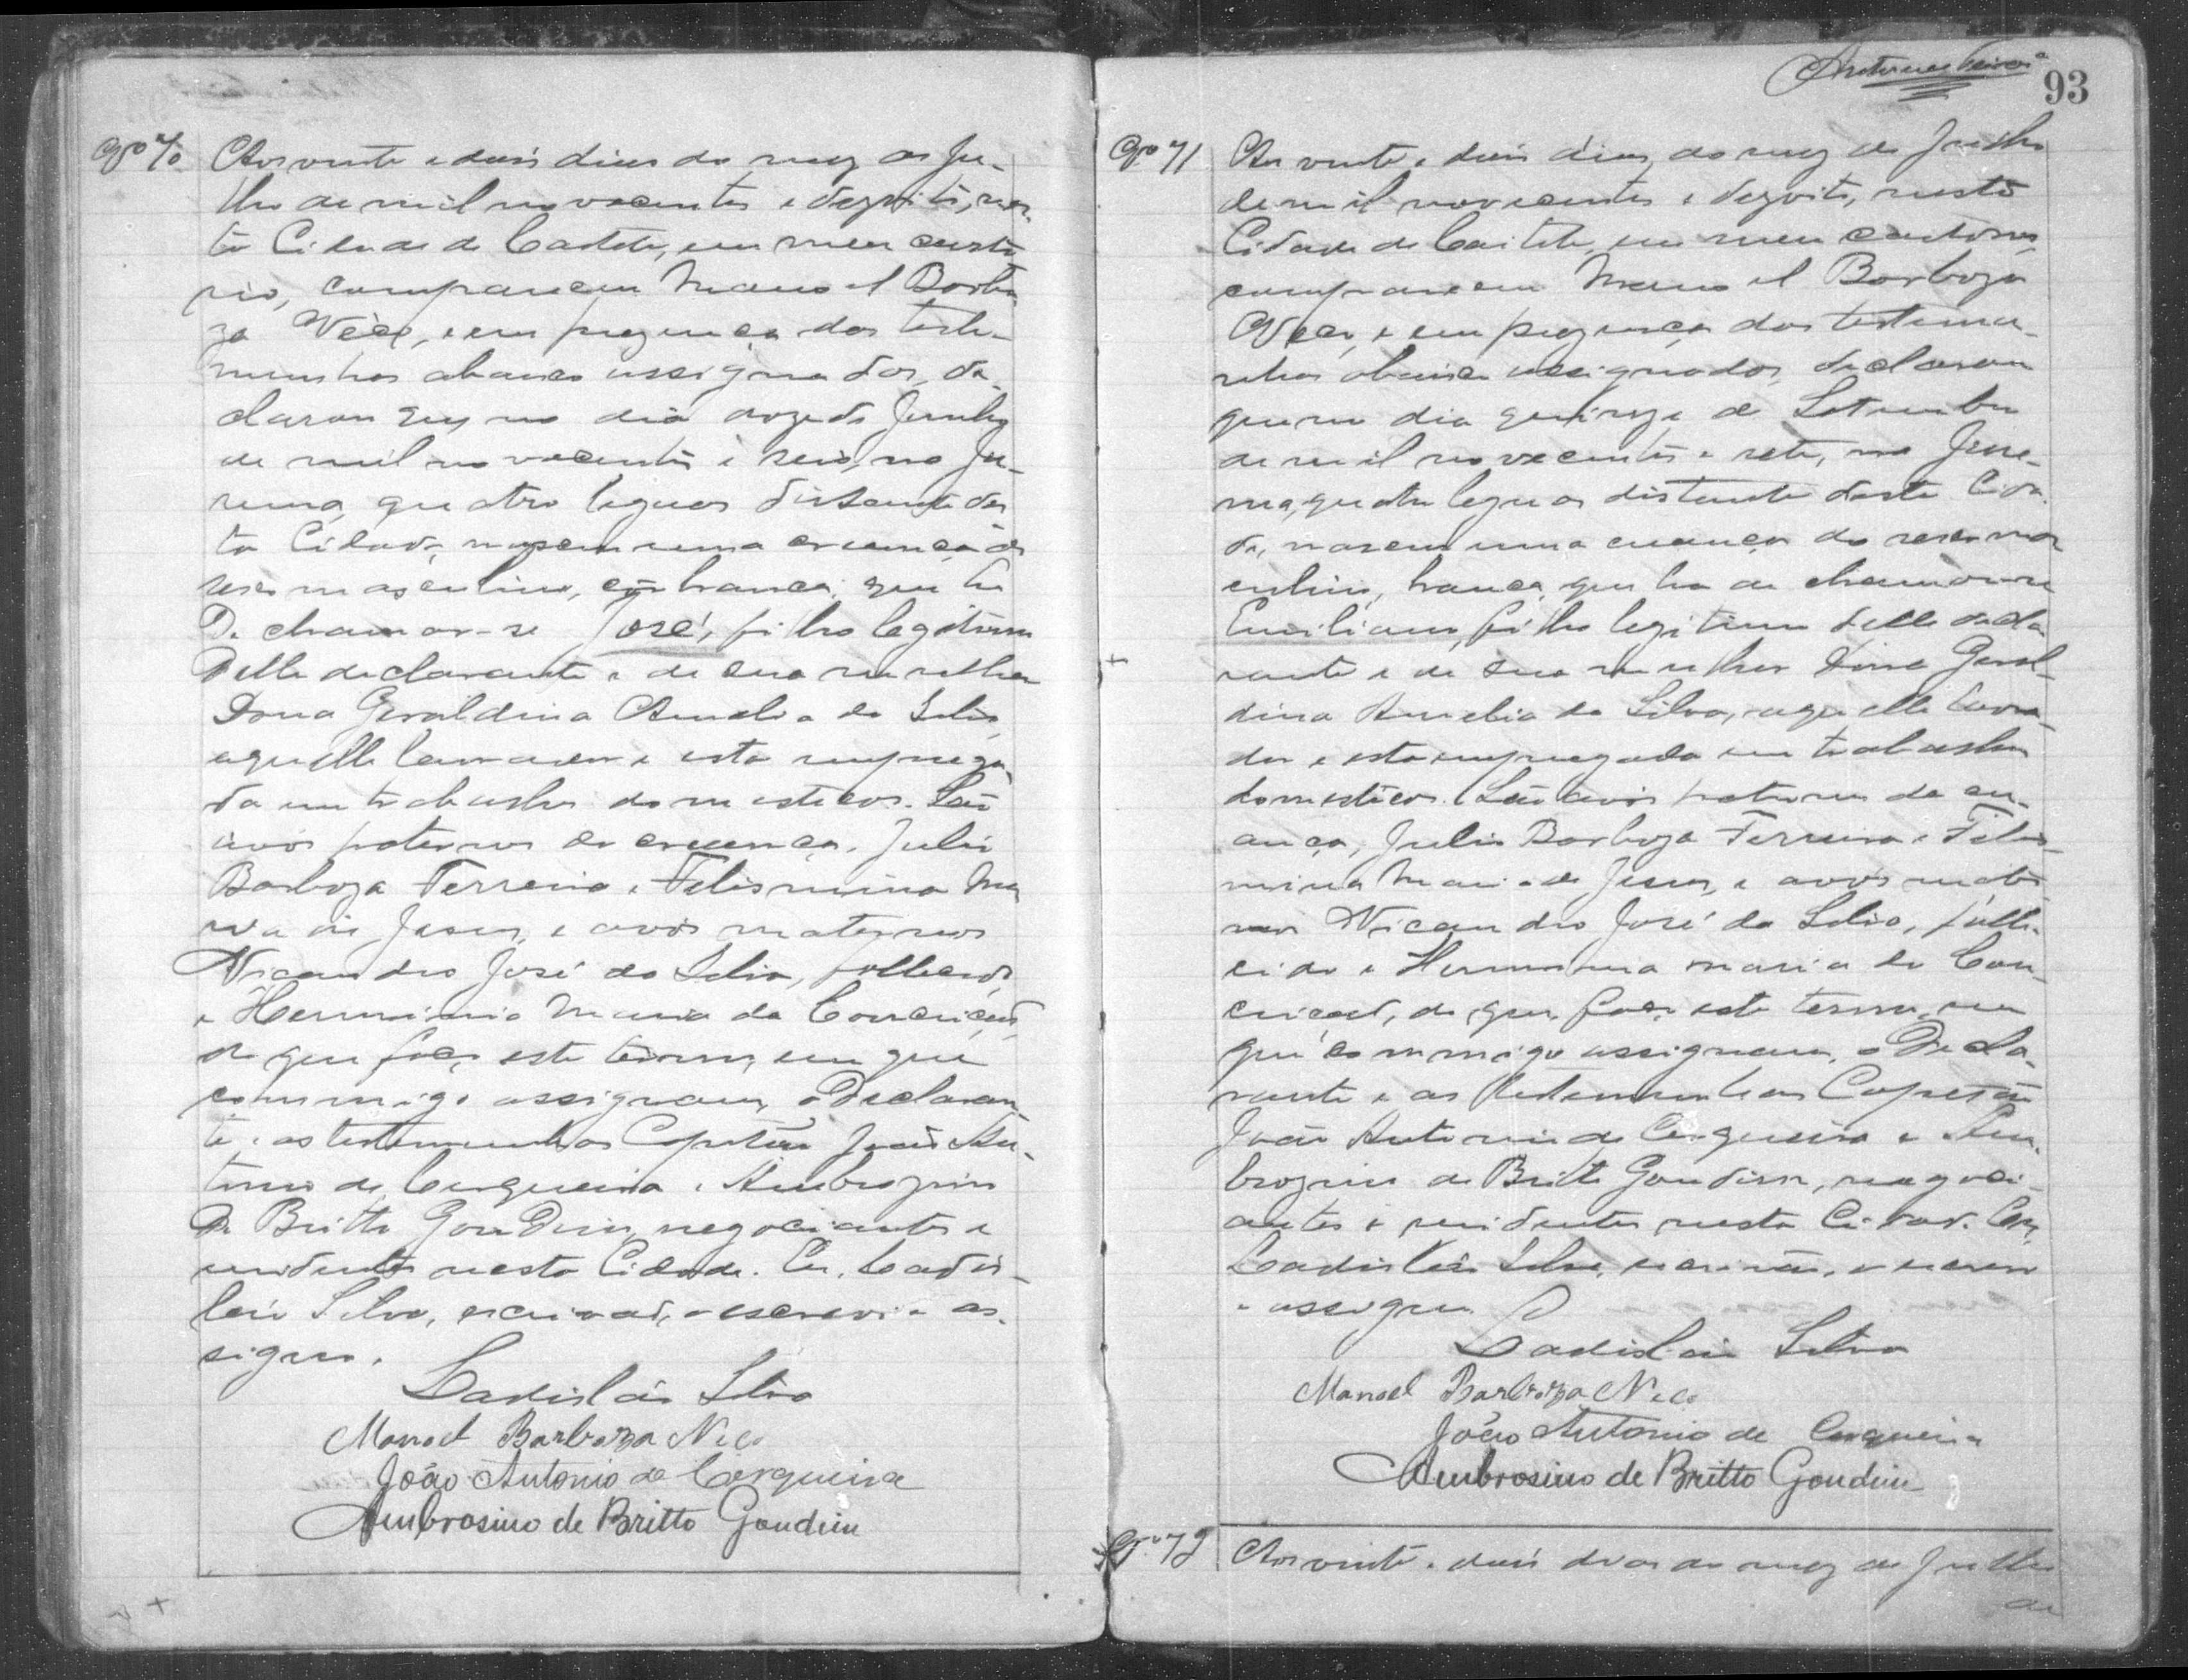 Nº 70
Aos vinte e dois dias do mez de Ju-
lho de mil novecentos e dezoito, nes-
ta Cidade de Caeteté, em meu carto-
rio, compareceu Manoel Barbo
za Néco, e em prezença das teste-
munhas abaixo assignadas, de-
clarou que no dia doze de Junho
de mil novecentos e seis, no Ju-
rema, quatro leguas distante des
ta Cidade, nasceu uma creança do
sexo masculino, côr branca, que ha
de chamar-se José, filho legitimo
delle declarante e de sua mulher
Dona Geraldina Amelia da Silva,
aquelle lavrador e esta emprega
da em trabalhos domesticos. São
avós paternos da creança, Julio
Barboza Ferreira e Felismina Ma
ria de Jesus, e avós maternos
Nicandro José da Silva, fallecido,
e Herminia Maria da Conceição,
do que faço este termo, em que
commigo assignam, o Declaran
te e as testemunhas Capitão João An-
tonio de Cerqueira e Ambrozino
de Britto Gondim, negociantes e
residentes nesta Cidade. Eu, Ladis-
láo Silva, escrivão, o escrevi e as-
signo.
Ladisláo Silva
Manoel Barboza Neco
João Antonio de Cerqueira
Ambrosino de Britto Gondim
93
Nº 71
Aos vinte e dois dias do mez de Julho
de mil novecentos e dezoito, nesta
Cidade de Caeteté, em meu cartorio,
compareceu Manoel Barboza
Neco, e em prezença das testemu-
nhas abaixo assignadas, declarou
que no dia quinze de Setembro
de mil novecentos e sete, no Jure-
ma, quatro leguas distante desta Cida-
de, nasceu uma creança do sexo mas
culino, branca, que ha de chamar-se
Emiliano, filho legitimo delle decla
rante e de sua mulher Dona Geral-
dina Amelia da Silva, aquelle lavra-
dor e esta empregada em trabalhos
domesticos. São avós paternos da cre-
ança, Julio Barboza Ferreira e Felis-
mina Maria de Jesus, e avós mater
nos Nicandro José da Silva, falle-
cido e Herminia Maria da Con-
ceição, do que faço este termo, em
que commigo assignam, o Decla-
rante e as testemunhas Capitão
João Antonio de Cerqueira e Am-
brozino de Britto Gondim, negoci-
antes e residentes nesta Cidade. Eu,
Ladisláo Silva, escrivão, o escrevi
e assigno
Ladisláo Silva
Manoel Barboza Neco
João Antonio de Cerqueira
Ambrosino de Britto Gondim
Nº 72
Aos vinte e dois dias do mez de Julho
de